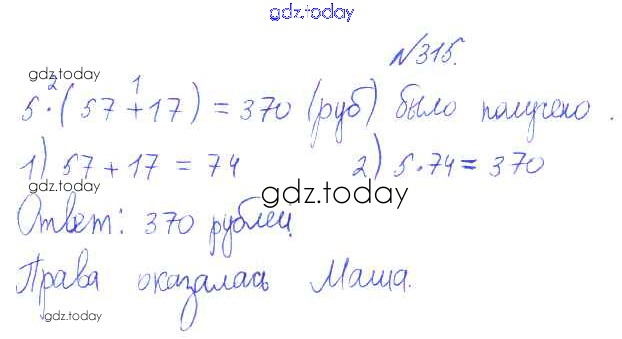 gdz.today
№315.
gdz.today
2 1
5·(57+17)=370 (руб) было получено.
1) 57+17=74 2) 5·74=370
gdz.today
gdz.today
Ответ: 370 рублей
Права оказалась Маша.
gdz.today